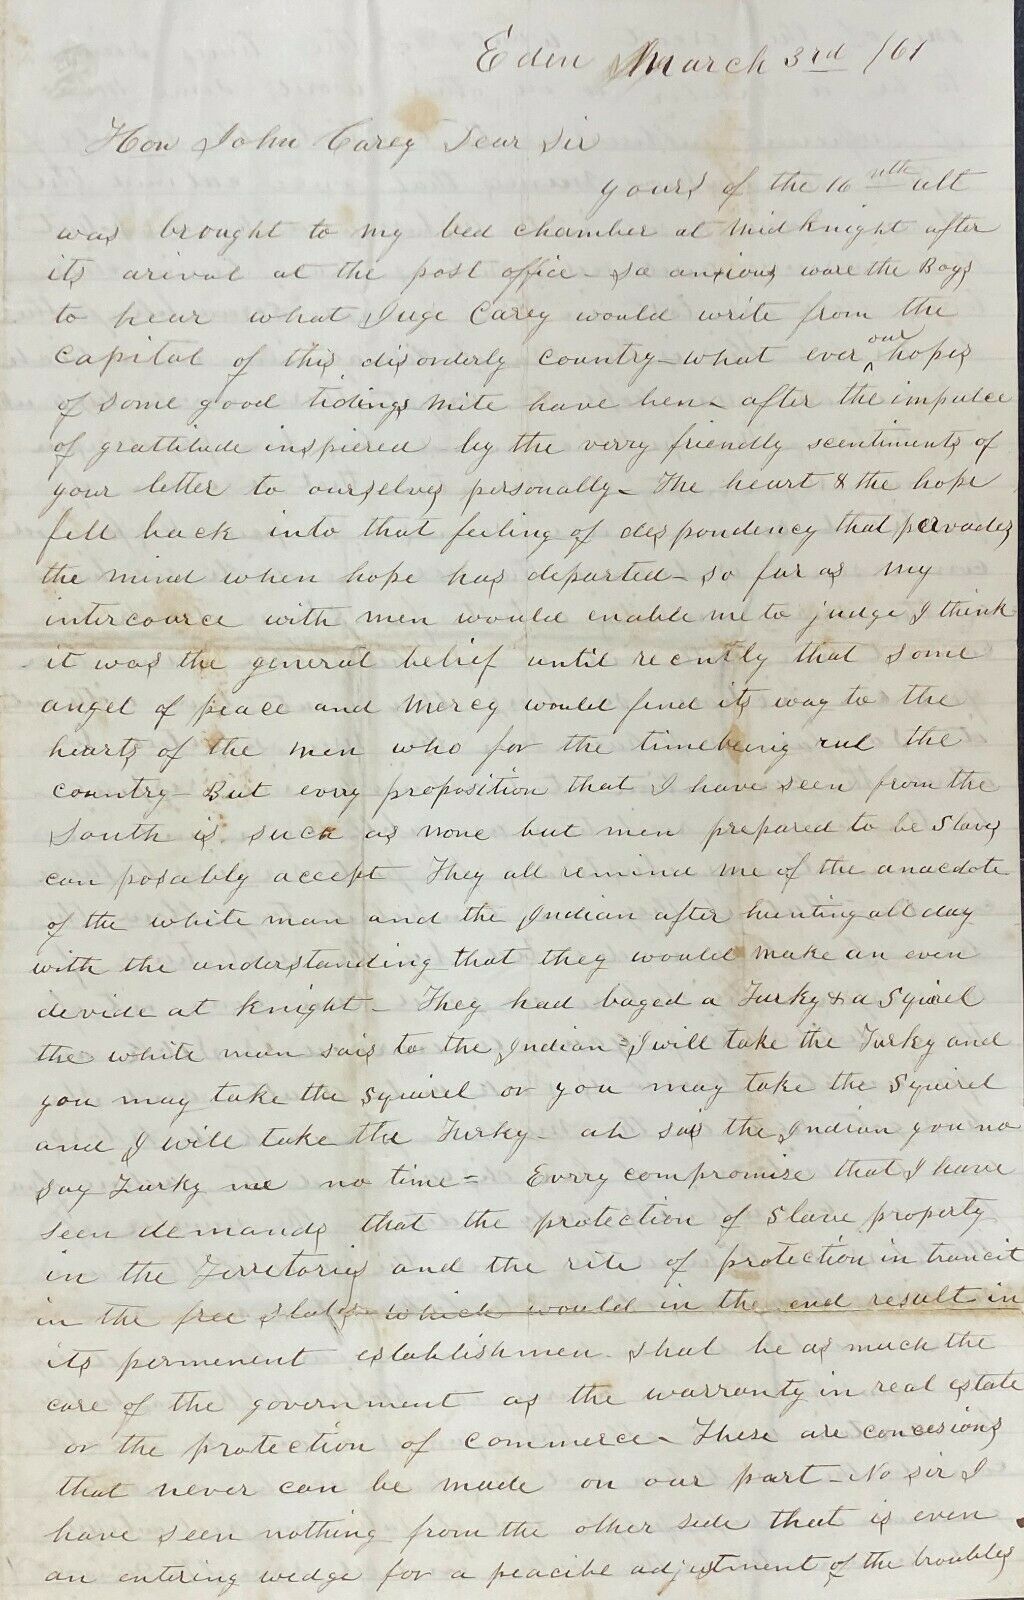 Eden March 3rd /61
Hon John Carey Dear Sir
yours of the 16 ult
was brought to my bed chamber at midknight after
its arival at the post office - so anxious ware the Boys
to hear what Juge Carey would write from the
capital of this disorderly country - what ever our hopes
of some good tidings mite have ben - after the impulce
of grattitude inspiered by the verry friendly scentiments of
your letter to ourselves personally - The heart & the hope
fell back into that feeling of despondency that pervades
the mind when hope has departed - so far as my
intercource with men would enable me to judge I think
it was the general belief until recently that some
angel of peace and mercy would find its way to the
hearts of the men who for the timebeing rul the
country - But evry proposition that I have seen from the
South is such as none but men prepared to be Slaves
can posably accept They all remind me of the anacdote
of the white man and the Indian after hunting all day
with the understanding that they would make an even
devide at knight - They had baged a Turky & a Squirel
the white man sais to the Indian = I will take the Turky and
you may take the squirel or you may take the squirel
and I will take the Turky - ah sais the Indian you no
say Turky me no time = Evrry compromise that I have
seen demands that the protection of Slave property
in the Territories and the rite of protection in trancit
in the free States which would in the end result in
its permenent establishmen shal be as much the
care of the government as the warranty in real estate
or the protection of commerce - These are concesions
that never can be made on our part - No sir I
have seen nothing from the other side that is even
an entering wedge for a peacibe adjustment of the troubles